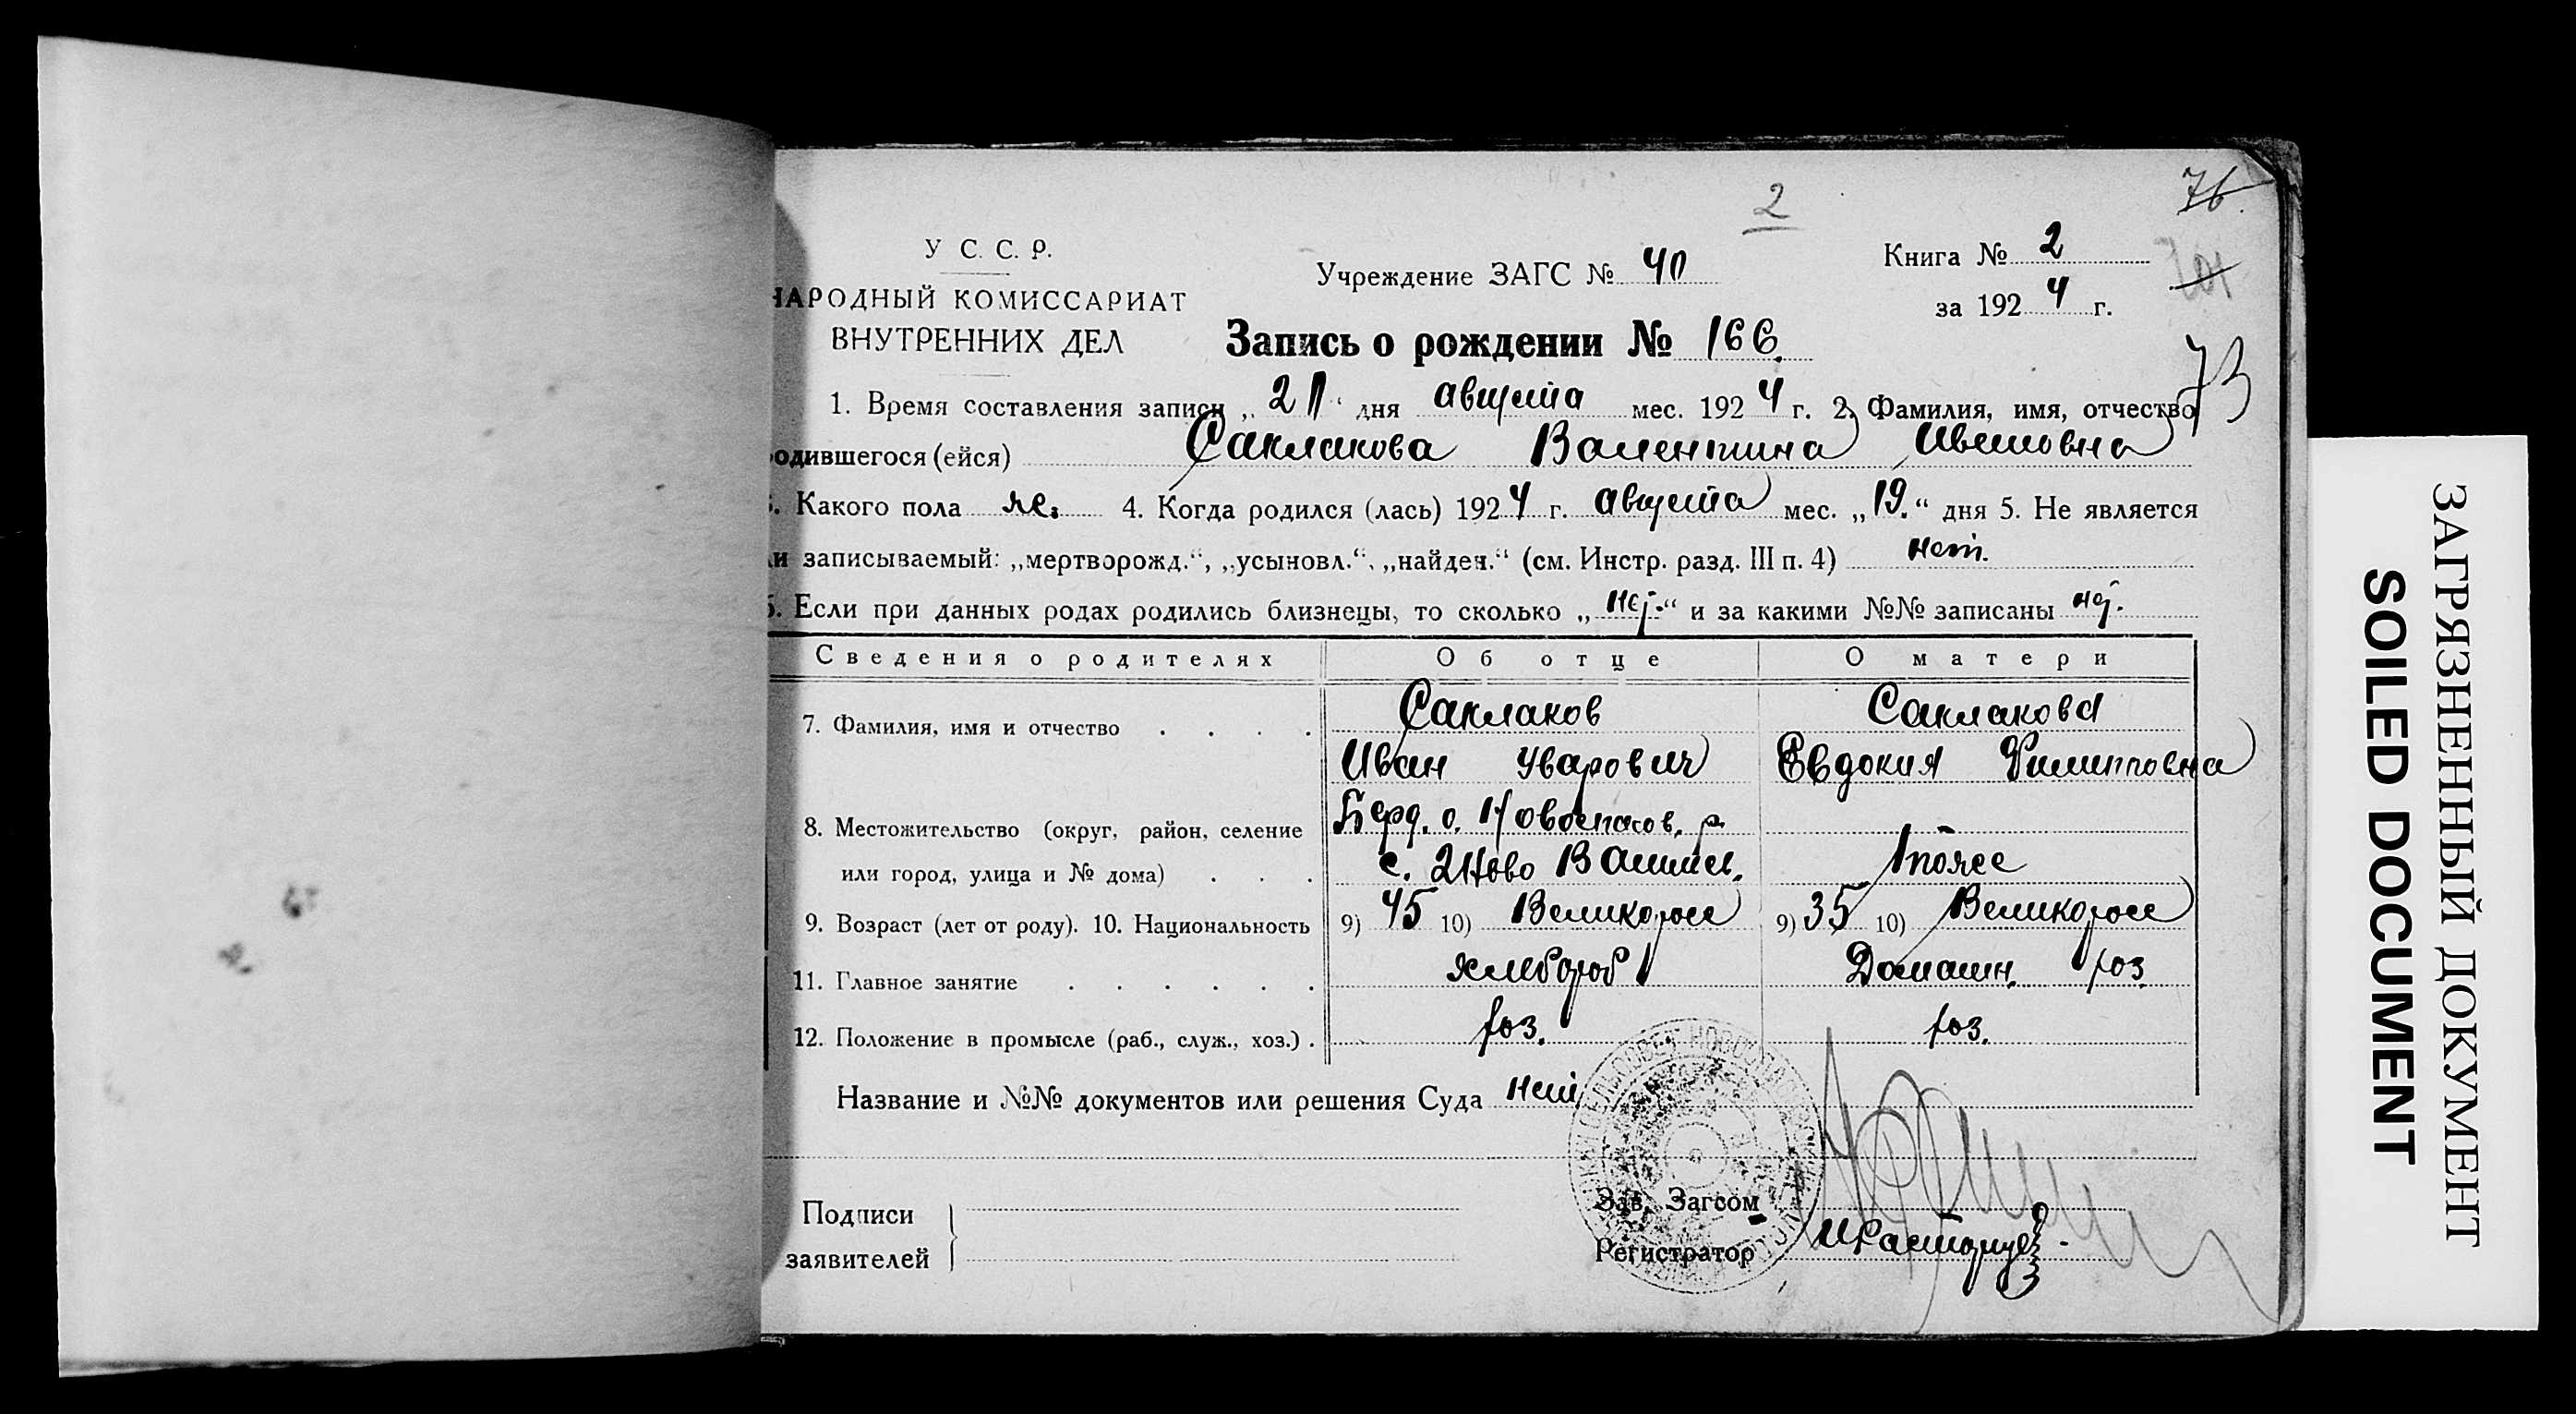 2
76
У С. С. Р.
НАРОДНЫЙ КОМИССАРИАТ
ВНУТРЕННИХ ДЕЛ
Учреждение ЗАГС № 40
Книга № 2
за 1924 г.
Запись о рождении № 166.
73
1. Время составления записи „ 21 “ дня августа мес. 1924 г. 2. Фамилия, имя, отчество
родившегося (ейся) Саклакова Валентина Ивановна
3. Какого пола ж. 4. Когда родился (лась) 1924 г. августа мес. „19.“ дня 5. Не является
ли записываемый: „мертворожд.“, „усыновл.“, „найден.“ (см. Инстр. разд. III п. 4) нет.
6. Если при данных родах родились близнецы, то сколько „нет.“ и за какими №№ записаны нет.
Сведения о родителях Об отце О матери
7. Фамилия, имя и отчество . . . . Саклаков Саклакова
Иван Уварович Евдокия Филипповна
8. Местожительство (округ, район, селение Берд. о. Новоспасов. р.
или город, улица и № дома) . . . с. 2 Ново Васильев. тоже
9. Возраст (лет от роду). 10. Национальность 9) 45 10) Великоросс 9) 35 10) Великоросс
11. Главное занятие . . . . . . хлебороб Домашн. хоз.
12. Положение в промысле (раб., служ., хоз.) . хоз. хоз.
Название и №№ документов или решения Суда нет
Подписи
заявителей
Зав. Загсом
Регистратор
ЗАГРЯЗНЕННЫЙ ДОКУМЕНТ
SOILED DOCUMENT